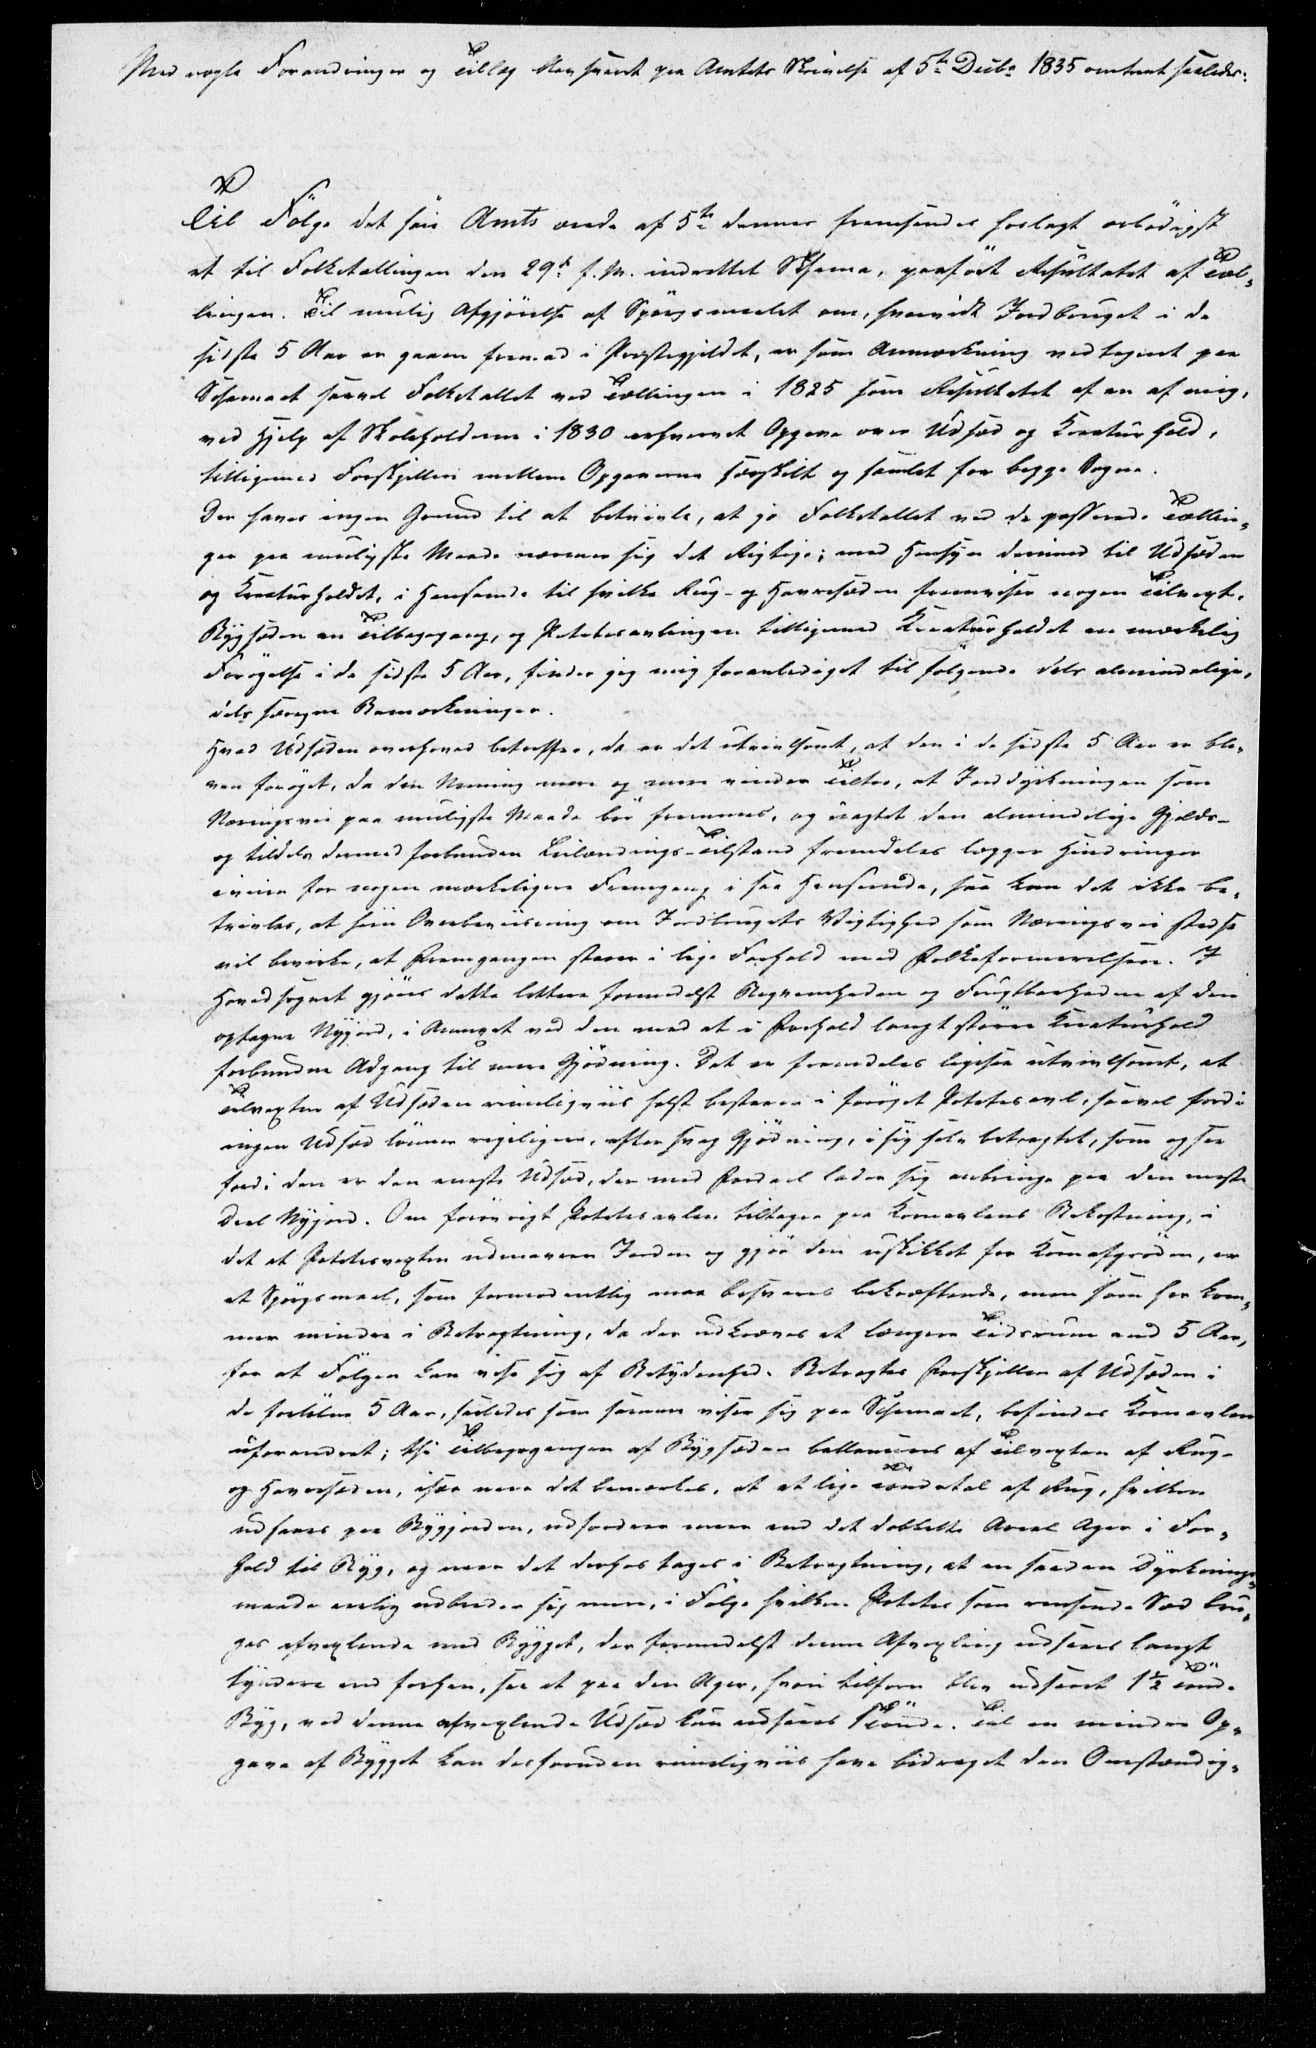 Med nogle Forandringer og Tillæg blev svaret paa Amtets Skrivelse af 5te Decbr 1835 omtrent saaledes:
Til Følge det høie Amts ordre af 5te dennes fremsendes hoslagt ærbødigst
et til Folketællingen den 29de f. M. indrettet Schema, paaført Resultatet af Tæl-
lingen. Til mulig Afgjørelse af Spørgsmaalet om, hvorvidt Jordbruget i de
sidste 5 Aar er gaaen fremad i Præstegjeldet, er som Anmærkning vedtegnet paa
Schemaet saavel Folketallet ved Tællingen i 1825 som Resultatet af en af mig,
ved Hjelp af Skoleholderne i 1830 erhvervet Opgave over Udsæd og Kreaturhold,
tilligemed Forskjellen mellem Opgaverne særskilt og samlet for begge Sogne.
Der haves ingen Grund til at betvivle, at jo Folketallet ved de passerede Tællin-
ger paa muligste Maade nærmer sig det Rigtige; med Hensyn derimod til Udsæden
og Kreaturholdet, i Henseende til hvilke Rug- og Havresæden fremviser nogen Tilvext,
Bygsæden en Tilbagegang, og Potetesavlingen tilligemed Kreaturholdet en mærkelig
Forøgelse i de sidste 5 Aar, finder jeg mig foranlediget til følgende dels almindelige,
dels særegne Bemærkninger.
Hvad Udsæden overhoved betræffer, da er det utvivlsomt, at den i de sidste 5 Aar er ble-
ven forøget, da den Mening mere og mere vinder Tiltro, at Jorddyrkningen som
Næringsvei paa muligste Maade bør fremmes, og uagtet den almindelige Gjelds-
og tildels dermed forbunden Leilændings-Tilstand fremdeles lægger Hindringer
iveien for nogen mærkeligere Fremgang i saa Henseende, saa kan det ikke be-
tvivles, at hiin Overbeviisning om Jordbrugets Vigtighed som Næringsvei stedse
vil bevirke, at Fremgangen staaer i lige Forhold med Folkeformerelsen. I
Hovedsognet gjøres dette lettere formedelst Beqvemheden og Frugtbarheden af den
optagne Nyjord, i Annexet ved den med et i Forhold langt større Kreaturhold
forbundne Adgang til mere Gjødning. Det er fremdeles ligesaa utvivlsomt, at
Tilvexten af Udsæden rimeligviis helst bestaaer i forøget Potetesavl, saavel fordi
ingen Udsæd lønner rigeligere, efter svag Gjødning, i sig selv betragtet, som ogsaa
fordi den er den eneste Udsæd, der med Fordeel lader sig anbringe paa den meste
Deel Nyjord. Om forøvrigt Potetesavlen tiltager paa Kornavlens Bekostning, i
det at Potetesvexten udmavrer Jorden og gjør den uskikket for Kornafgrøden, er
et Spørgsmaal, som formodentlig maa besvares bekræftende, men som her kom-
mer mindre i Betragtning, da der udkræves et længere Tidsrum end 5 Aar,
for at Følgen kan vise sig af Betydenhed. Betragtes Forskjellen af Udsæden i
de forløbne 5 Aar, saaledes som samme viser sig paa Schemaet, befindes Kornavlen
uforandret; thi Tilbagegangen af Bygsæden ballanceres af Tilvexten af Rug-
og Havresæden, især naar det bemærkes, at et lige Tøndetal af Rug, hvilken
udsaaes paa Bygjorden, udfordrer mere end det dobbelte Areal Ager i For-
hold til Byg, og naar det derhos tages i Betragtning, at en saadan Dyrknings-
maade aarlig udbreder sig mere, i Følge hvilken Potetes som rensende Sæd bru-
ges afvexlende med Bygget, der formedelst denne Afvexling udsaaes langt
tyndere end forhen, saa at paa den Ager, hvori tilforn blev udsaaet 1½ Tønde
Byg, ved denne afvexlende Udsæd kun udsaaes 1 Tønde. Til en mindre Op-
gave af Bygget kan desforuden rimeligviis have bidraget den Omstændig-